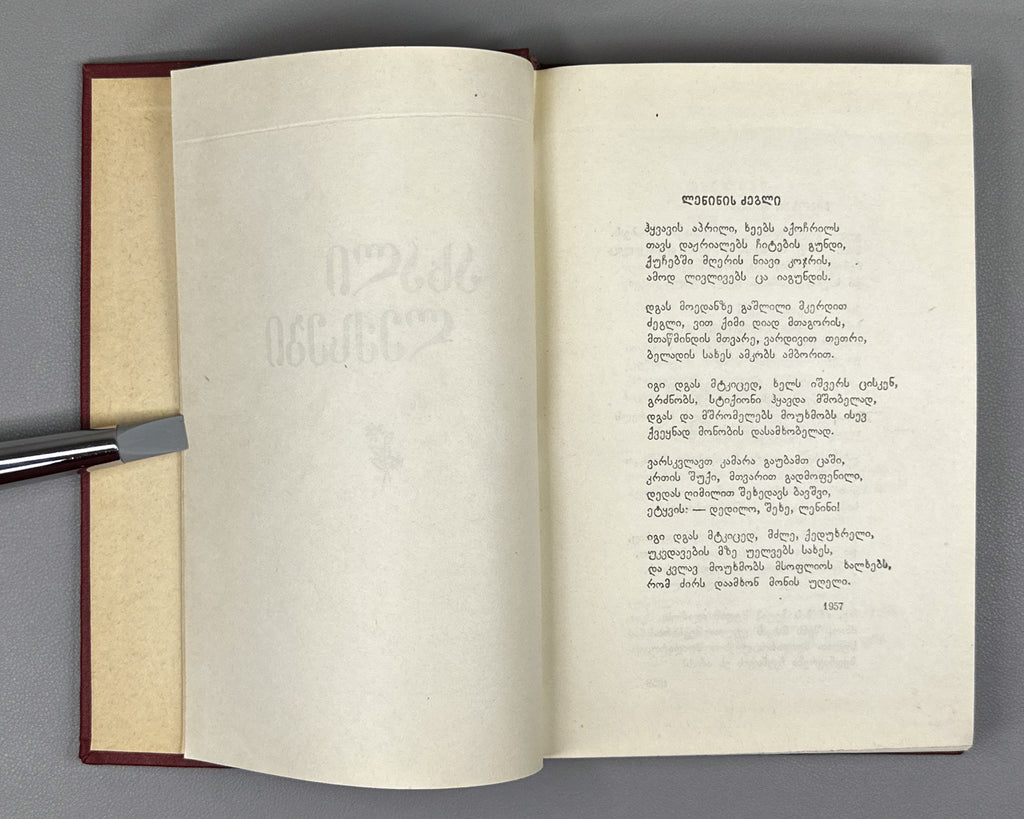 ლენინის ძეგლი
ჰყვავის აპრილი, ხეებს აქოჩრილს
თავს დაჟრიალებს ჩიტების გუნდი,
ქუჩებში მღერის ნიავი კოჯრის,
ამოდ ლივლივებს ცა იაგუნდის.
დგას მოედანზე გაშლილი მკერდით
ძეგლი, ვით ქიმი დიად მთაგორის,
მთაწმინდის მთვარე, ვარდივით თეთრი,
ბელადის სახეს ამკობს ამბორით.
იგი დგას მტკიცედ, ხელს იშვერს ცისკენ,
გრძნობს, სტიქიონი ჰყავდა მშობელად,
დგას და მშრომელებს მოუხმობს ისევ
ქვეყნად მონობის დასამხობელად.
ვარსკვლავთ კამარა გაუბამთ ცაში,
კრთის შუქი, მთვარით გადმოფენილი,
დედას ღიმილით შეხედავს ბავშვი,
ეტყვის: — დედილო, შეხე, ლენინი!
იგი დგას მტკიცედ, მძლე, ქედუხრელი,
უკვდავების მზე უელვებს სახეს,
და კვლავ მოუხმობს მსოფლიოს ხალხებს,
რომ ძირს დაამხონ მონის უღელი.
1957